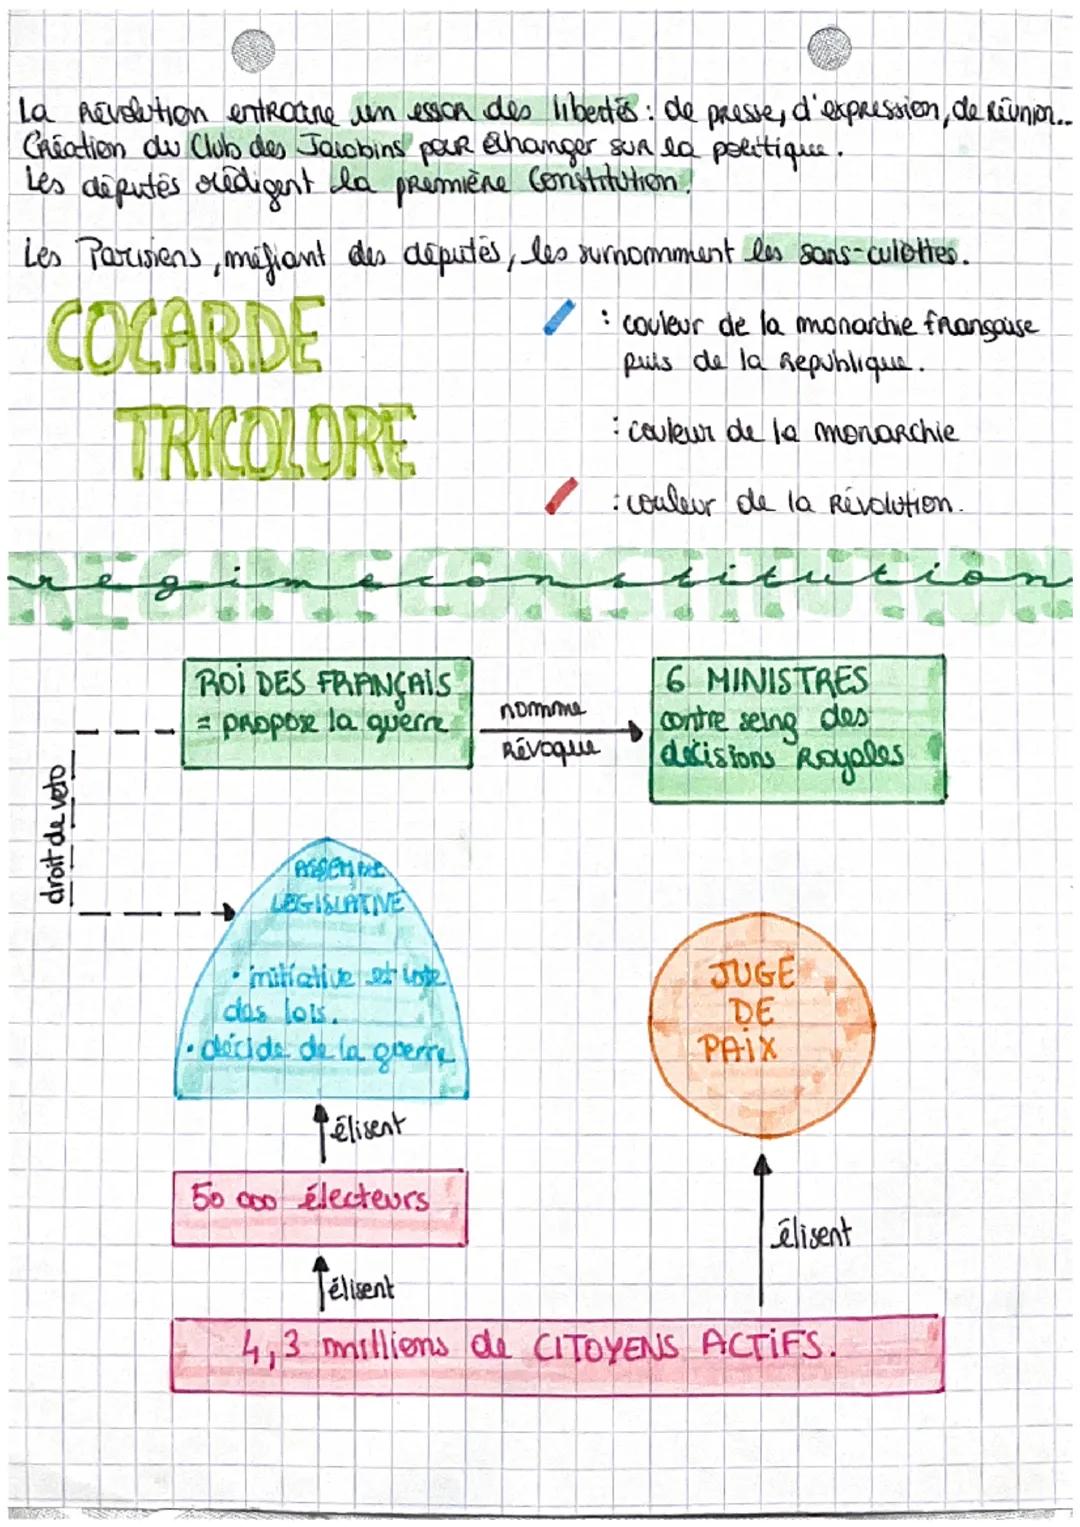 La Révolution entraine un essor des libertés : de presse, d'expression, de réunion...
Création du Club des Jacobins pour échanger sur la politique.
Les députés rédigent la première Constitution.
Les Parisiens, méfiant des députés, les surnommment les sans-culottes.
COCARDE
TRICOLORE
: couleur de la monarchie française
puis de la République.
: couleur de la monarchie
: couleur de la Révolution.
REGIME CONSTITUTION
regime constitution
ROI DES FRANÇAIS
= propose la guerre
nomme
révoque
6 MINISTRES
contre seing des
décisions Royales
droit de veto
ASSEMBLEE
LEGISLATIVE
• initiative et vote
des lois.
• décide de la guerre
JUGE
DE
PAIX
élisent
50 000 électeurs
élisent
élisent
4,3 millions de CITOYENS ACTIFS.